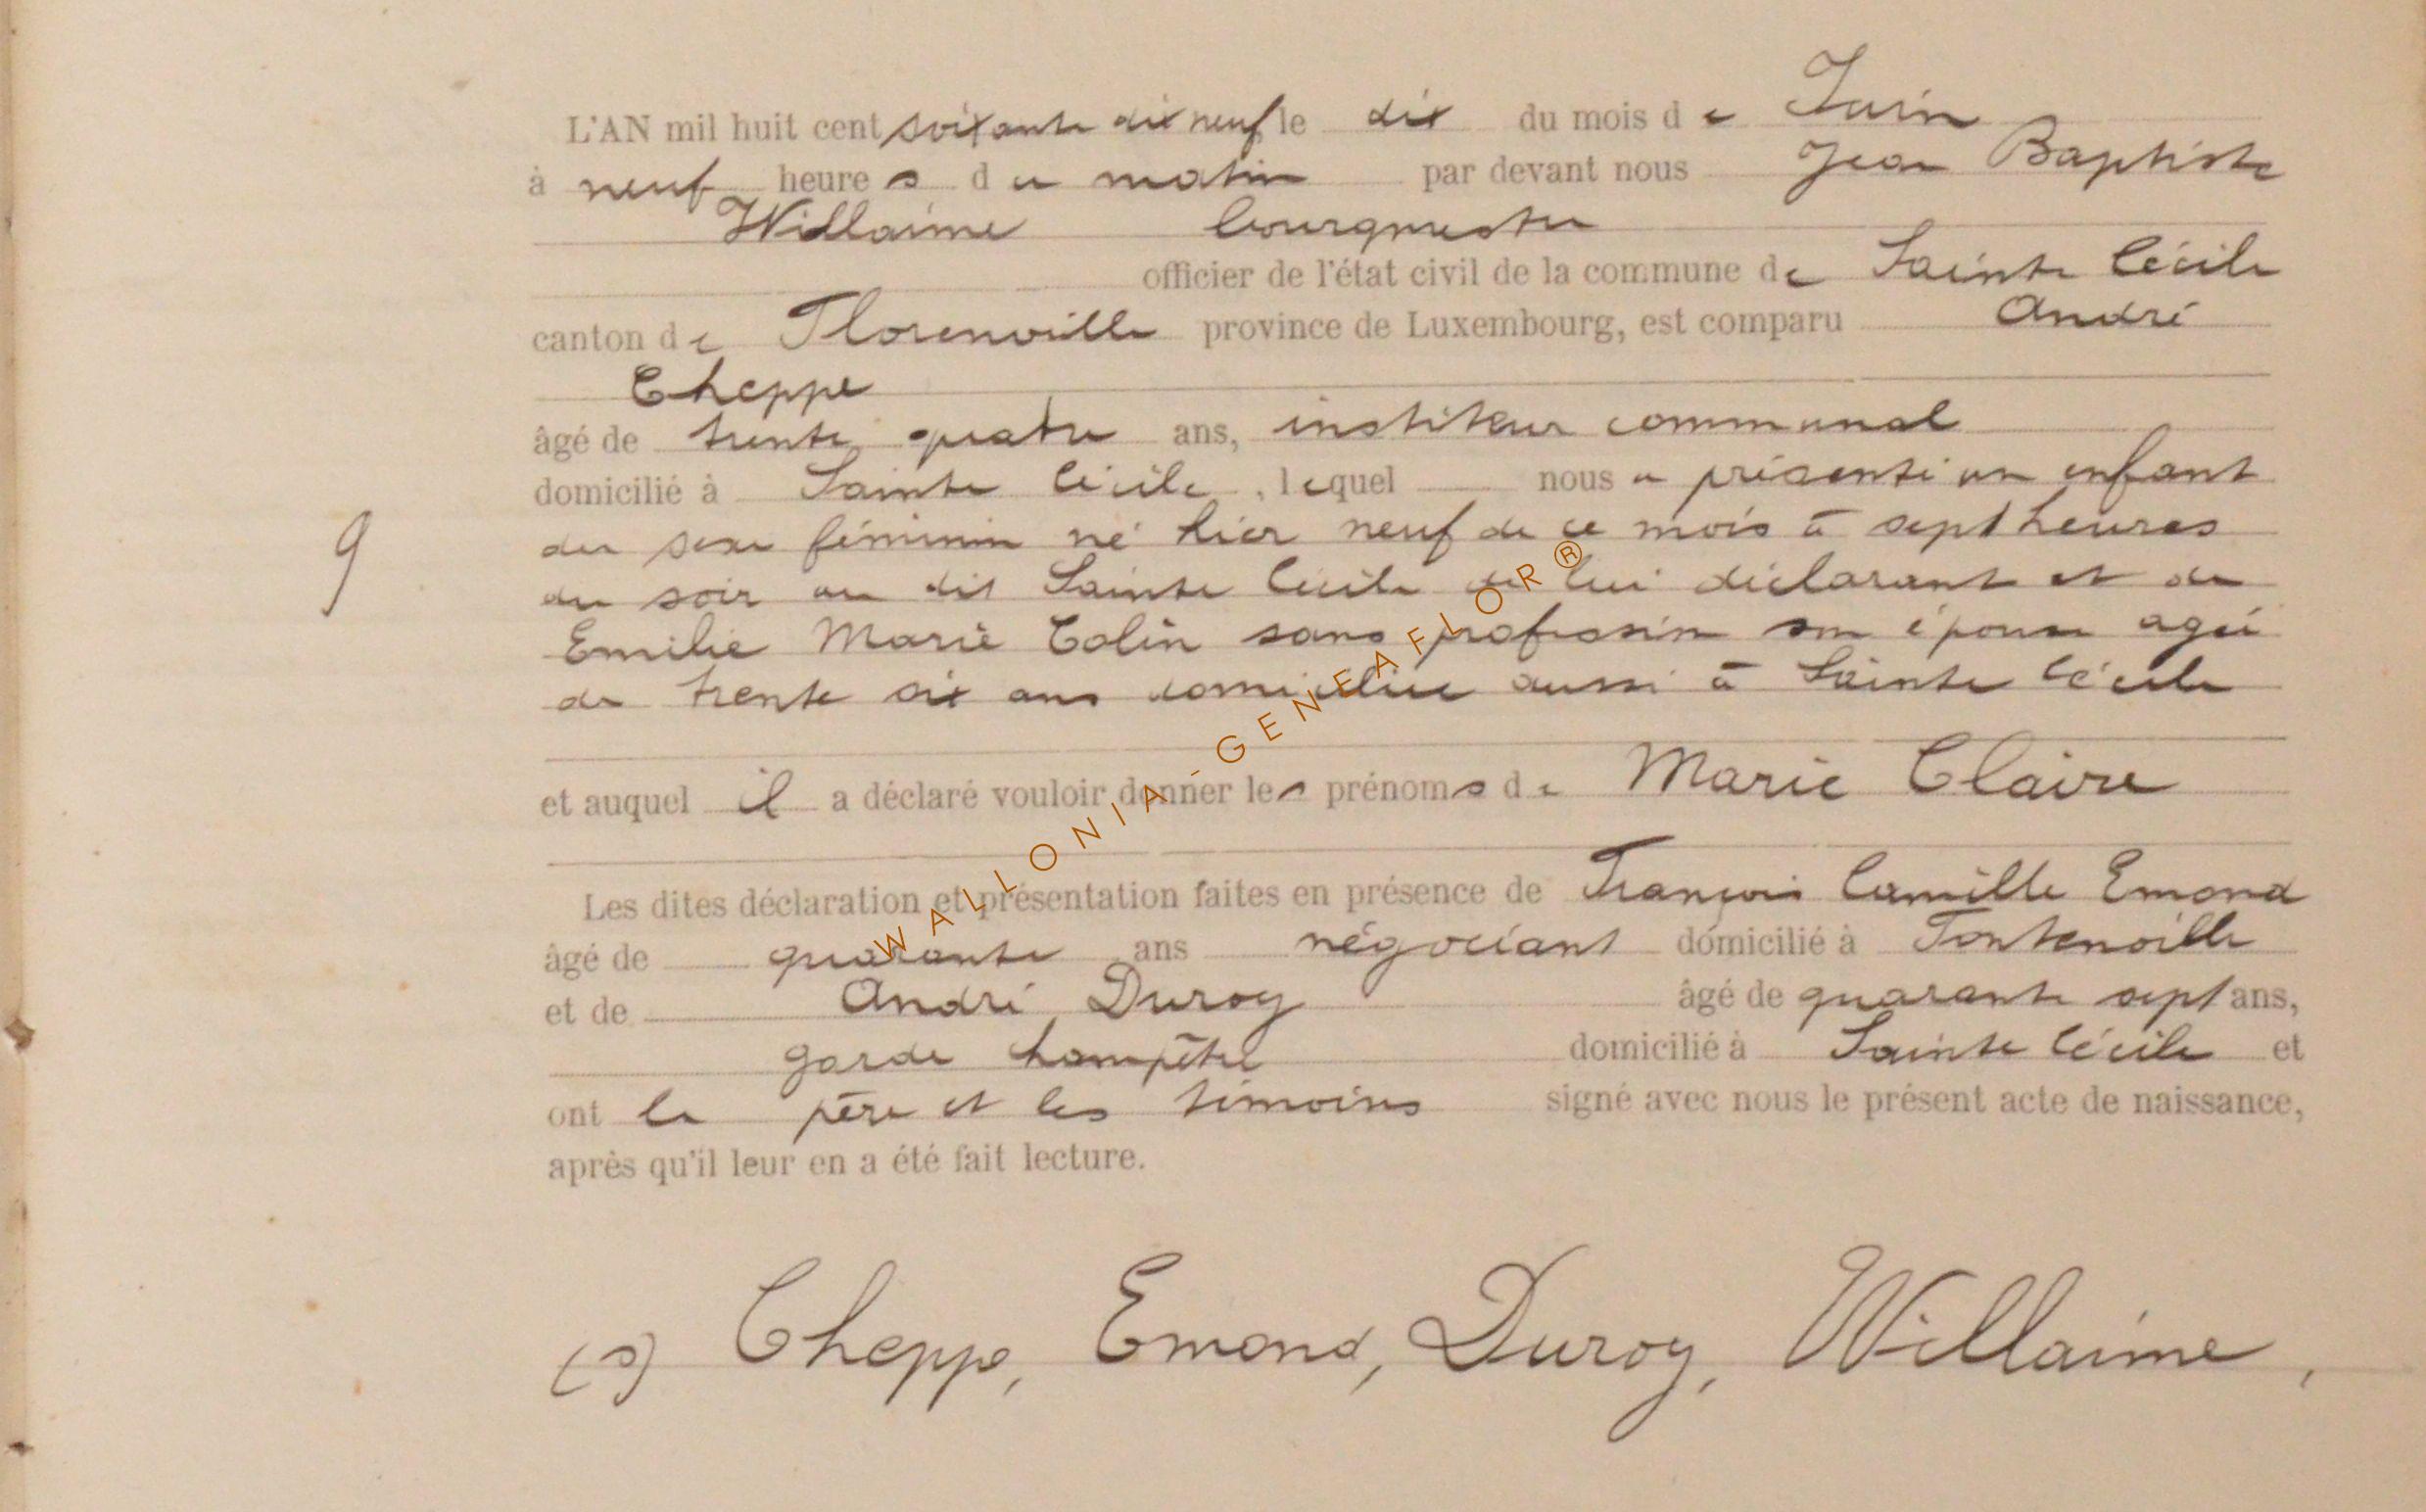 L'AN mil huit cent soixante dix neuf le dix du mois de Juin
à neuf heures du matin par devant nous Jean Baptiste
Willaime bourgmestre
officier de l'état civil de la commune de Sainte Cécile
canton de Florenville province de Luxembourg, est comparu André
Cheppe
âgé de trente quatre ans, instituteur communal
domicilié à Sainte Cécile, lequel nous a présenté un enfant
du sexe féminin né hier neuf de ce mois à sept heures
du soir au dit Sainte Cécile de lui déclarant et de
Emilie Marie Colin sans profession son épouse agée
de trente six ans domiciliée aussi à Sainte Cécile
9
et auquel il a déclaré vouloir donner les prénoms de Marie Claire
Les dites déclaration et présentation faites en présence de François Camille Emond
âgé de quarante ans négociant domicilié à Fontenoille
et de André Duroy âgé de quarante sept ans,
garde champêtre domicilié à Sainte Cécile et
ont le père et les témoins signé avec nous le présent acte de naissance,
après qu'il leur en a été fait lecture.
(s) Cheppe, Emond, Duroy, Willaime,
WALLONIA-GENEAFLOR®